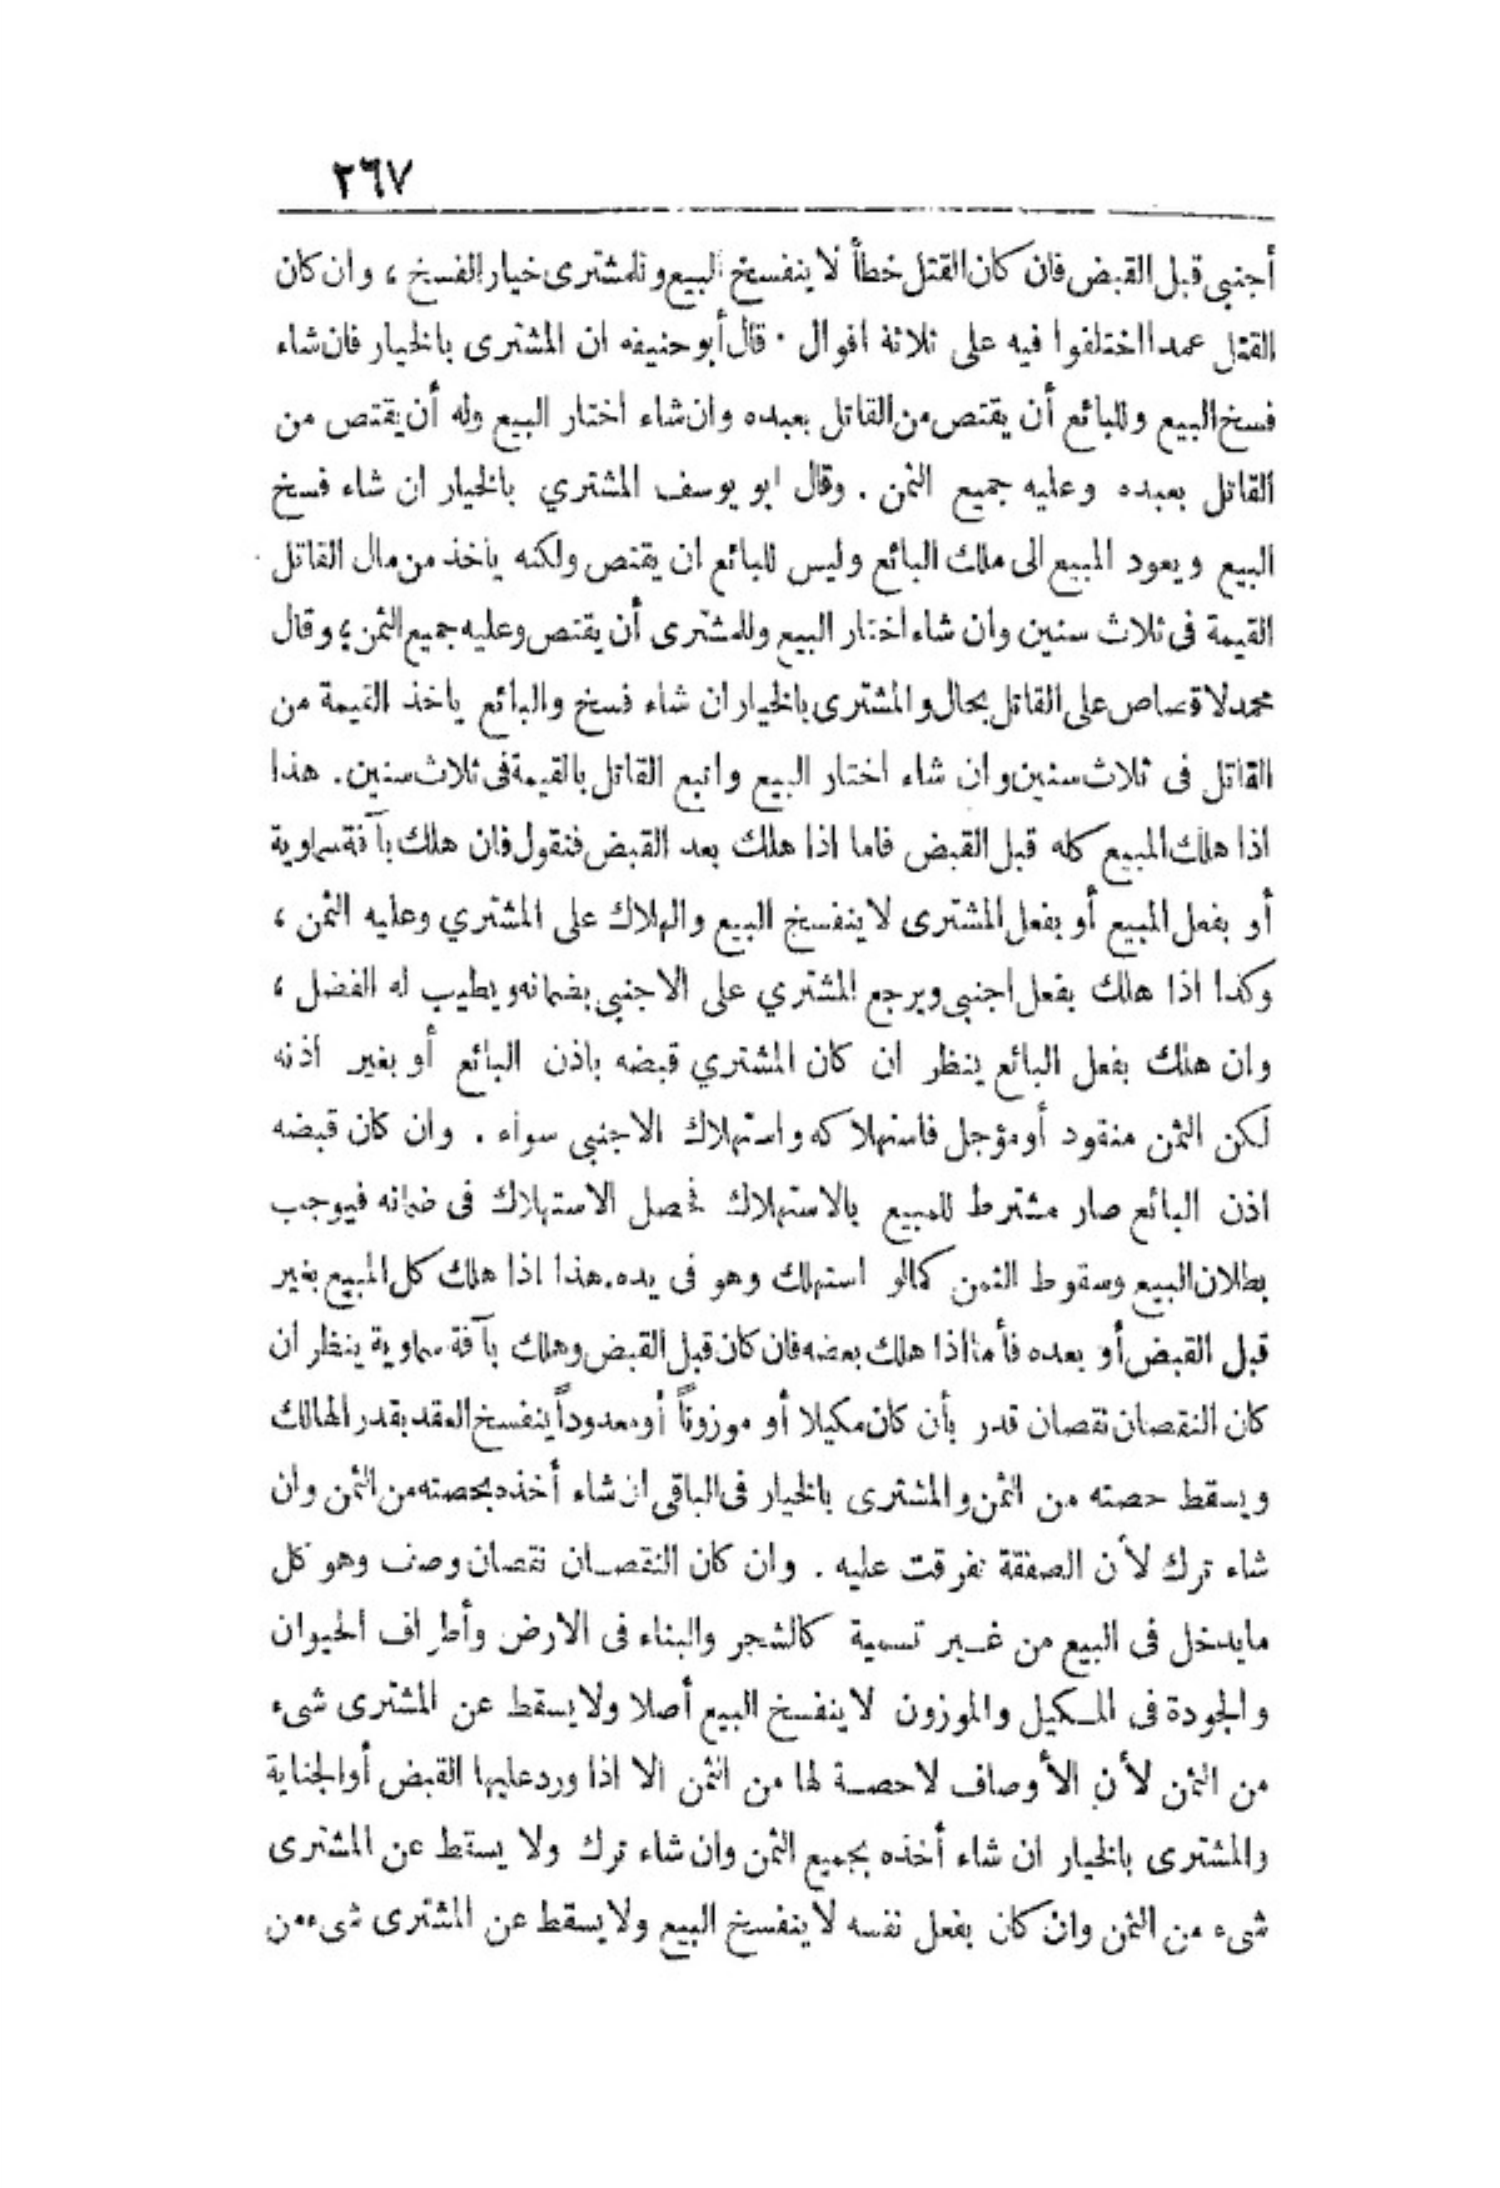 ٢٦٧
أجنبي قبل القبض فان كان القتل خطأ لا ينفسخ البيع وللمشترى خيار الفسخ ، وان كان
القتل عمدا اختلفوا فيه على ثلاثة اقوال . قال أبو حنيفه ان المشترى بالخيار فان شاء
فسخ البيع وللبائع أن يقتص من القاتل بعبده وان شاء اختار البيع وله أن يقتص من
القاتل بعبده وعليه جميع الثمن . وقال ابو يوسف المشتري بالخيار ان شاء فسخ
البيع ويعود المبيع الى ملك البائع وليس للبائع ان يقتص ولكنه ياخذ من مال القاتل
القيمة فى ثلاث سنين وان شاء اختار البيع وللمشترى أن يقتص وعليه جميع الثمن ، وقال
محمد لا قصاص على القاتل بحال والمشترى بالخيار ان شاء فسخ والبائع ياخذ القيمة من
القاتل فى ثلاث سنين وان شاء اختار البيع واتبع القاتل بالقيمة فى ثلاث سنين . هذا
اذا هلك المبيع كله قبل القبض فاما اذا هلك بعد القبض فنقول فان هلك بآفة سماوية
أو بفعل المبيع أو بفعل المشترى لا ينفسخ البيع والهلاك على المشتري وعليه الثمن ،
وكدا اذا هلك بفعل اجنبي ويرجع المشتري على الاجنبي بضمانه ويطيب له الفضل ،
وان هلك بفعل البائع ينظر ان كان المشتري قبضه باذن البائع أو بغير اذنه
لكن الثمن منقود أو مؤجل فاستهلاكه واستهلاك الاجنبي سواء . وان كان قبضه
اذن البائع صار مشترط للمبيع بالاستهلاك فحصل الاستهلاك فى ضمانه فيوجب
بطلان البيع وسقوط الثمن كمالو استهلك وهو فى يده . هذا اذا هلك كل المبيع بغير
قبل القبض أو بعده فأما اذا هلك بعضه فان كان قبل القبض وهلك بآفة سماوية ينظر ان
كان النقصان نقصان قدر بأن كان مكيلا أو موزوناً أو معدوداً ينفسخ العقد بقدر الهالك
ويسقط حصته من الثمن والمشترى بالخيار فى الباقى ان شاء أخذه بحصته من الثمن وان
شاء ترك لأن الصفقة تفرقت عليه . وان كان النقصان نقصان وصف وهو كل
مايدخل فى البيع من غير تسمية كالشجر والبناء فى الارض وأطراف الحيوان
والجودة فى المكيل والموزون لا ينفسخ البيع أصلا ولا يسقط عن المشترى شىء
من الثمن لأن الأوصاف لا حصة لها من الثمن الا اذا ورد عليها القبض أو الجناية
والمشترى بالخيار ان شاء أخذه بجميع الثمن وان شاء ترك ولا يسقط عن المشترى
شىء من الثمن وان كان بفعل نفسه لا ينفسخ البيع ولا يسقط عن المشترى شىء من